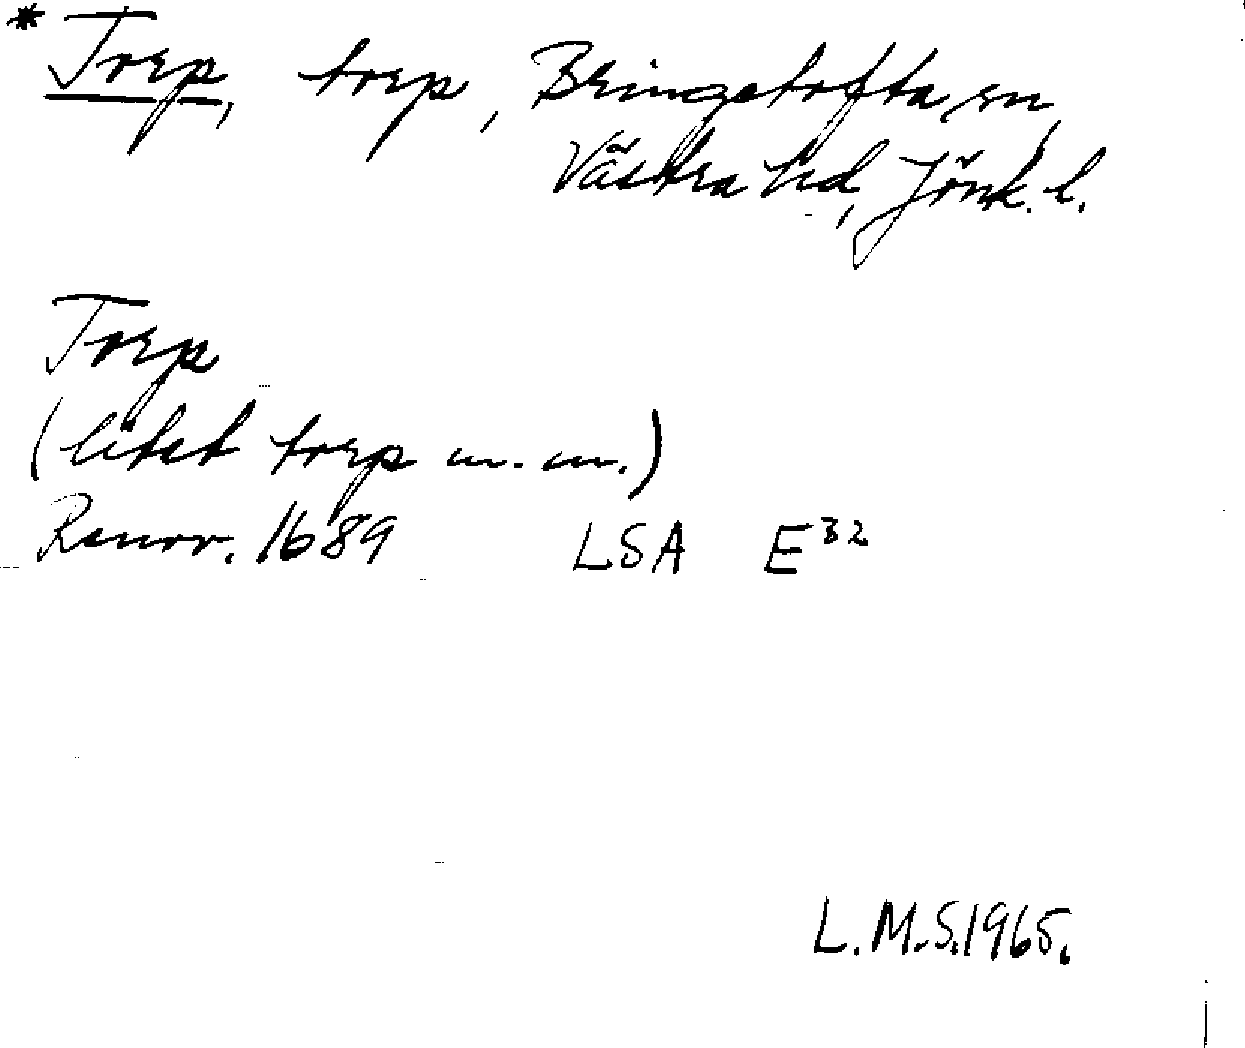 * Torp, torp, Bringetofta sn,
Västra hd, Jönk. l.
Torp
(litet torp m. m.)
Renov. 1689 LSA E³²
L.M.S. 1965.